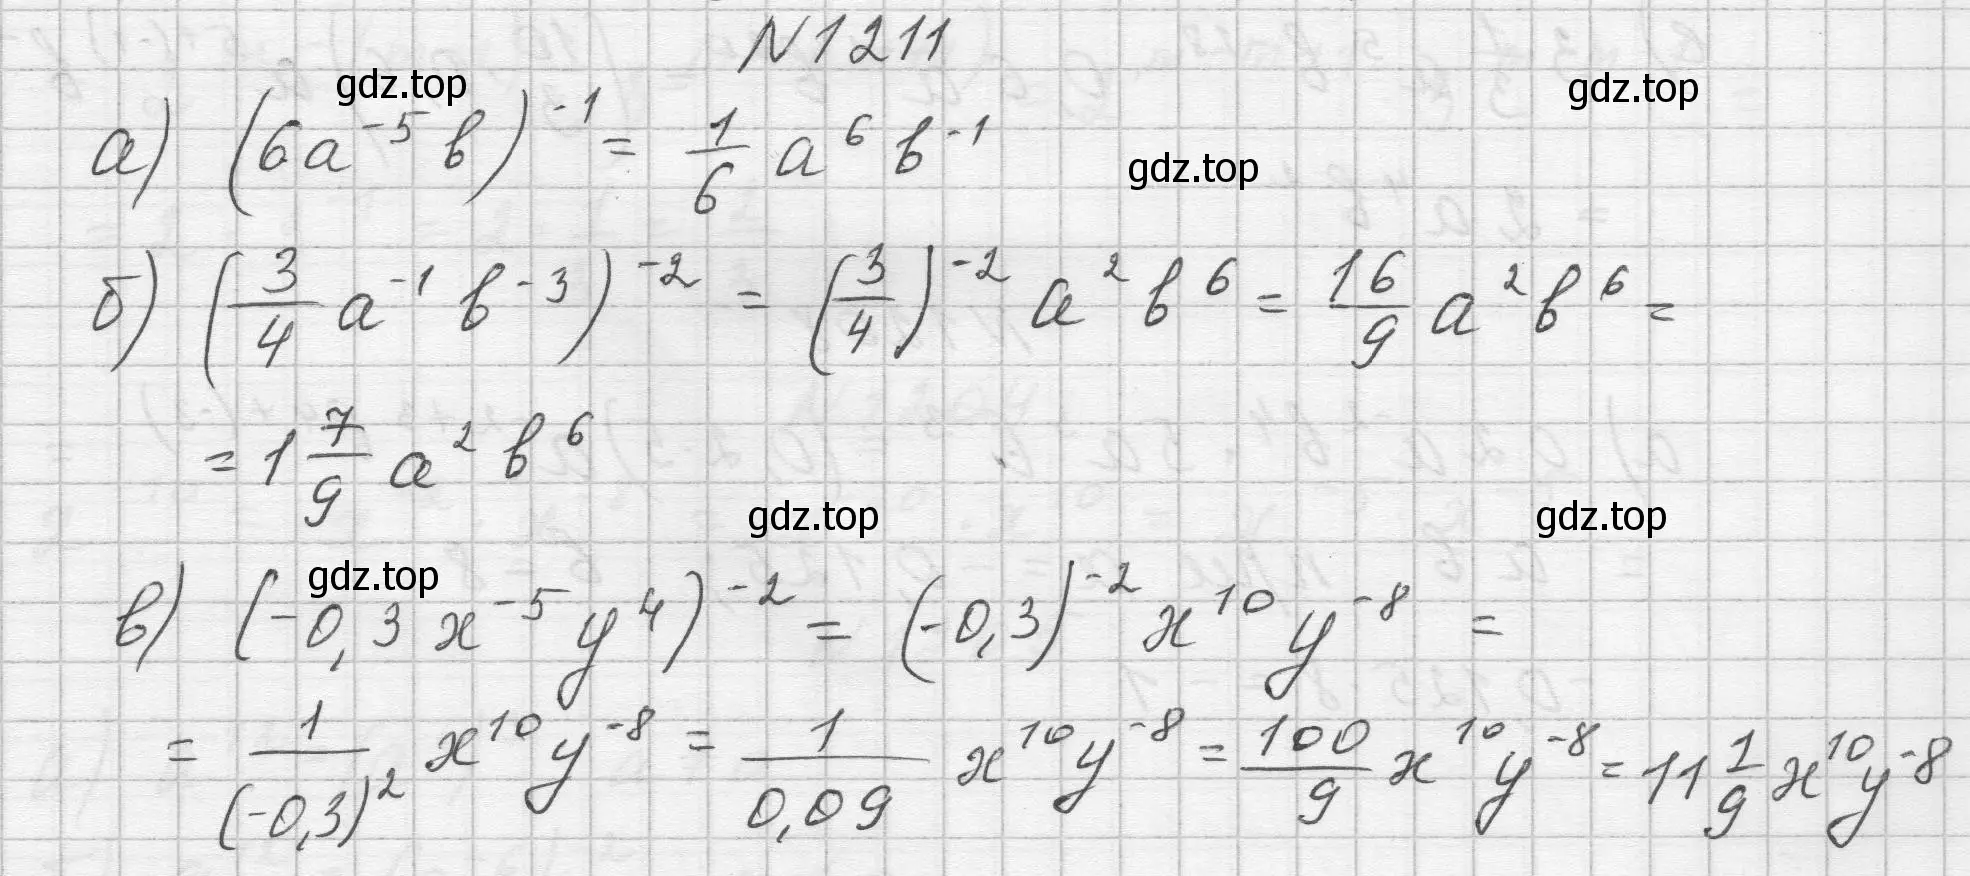 N1211
gdz.top gdz.top
а) (6a⁻⁵b)⁻¹ = 1/6 a⁶b⁻¹
gdz.top
б) (3/4 a⁻¹b⁻³)⁻² = (3/4)⁻² a²b⁶ = 16/9 a²b⁶ =
= 1 7/9 a²b⁶
gdz.top gdz.top
gdz.top
в) (-0,3x⁻⁵y⁴)⁻² = (-0,3)⁻² x¹⁰y⁻⁸ =
= 1/(-0,3)² x¹⁰y⁻⁸ = 1/0,09 x¹⁰y⁻⁸ = 100/9 x¹⁰y⁻⁸ = 11 1/9 x¹⁰y⁻⁸